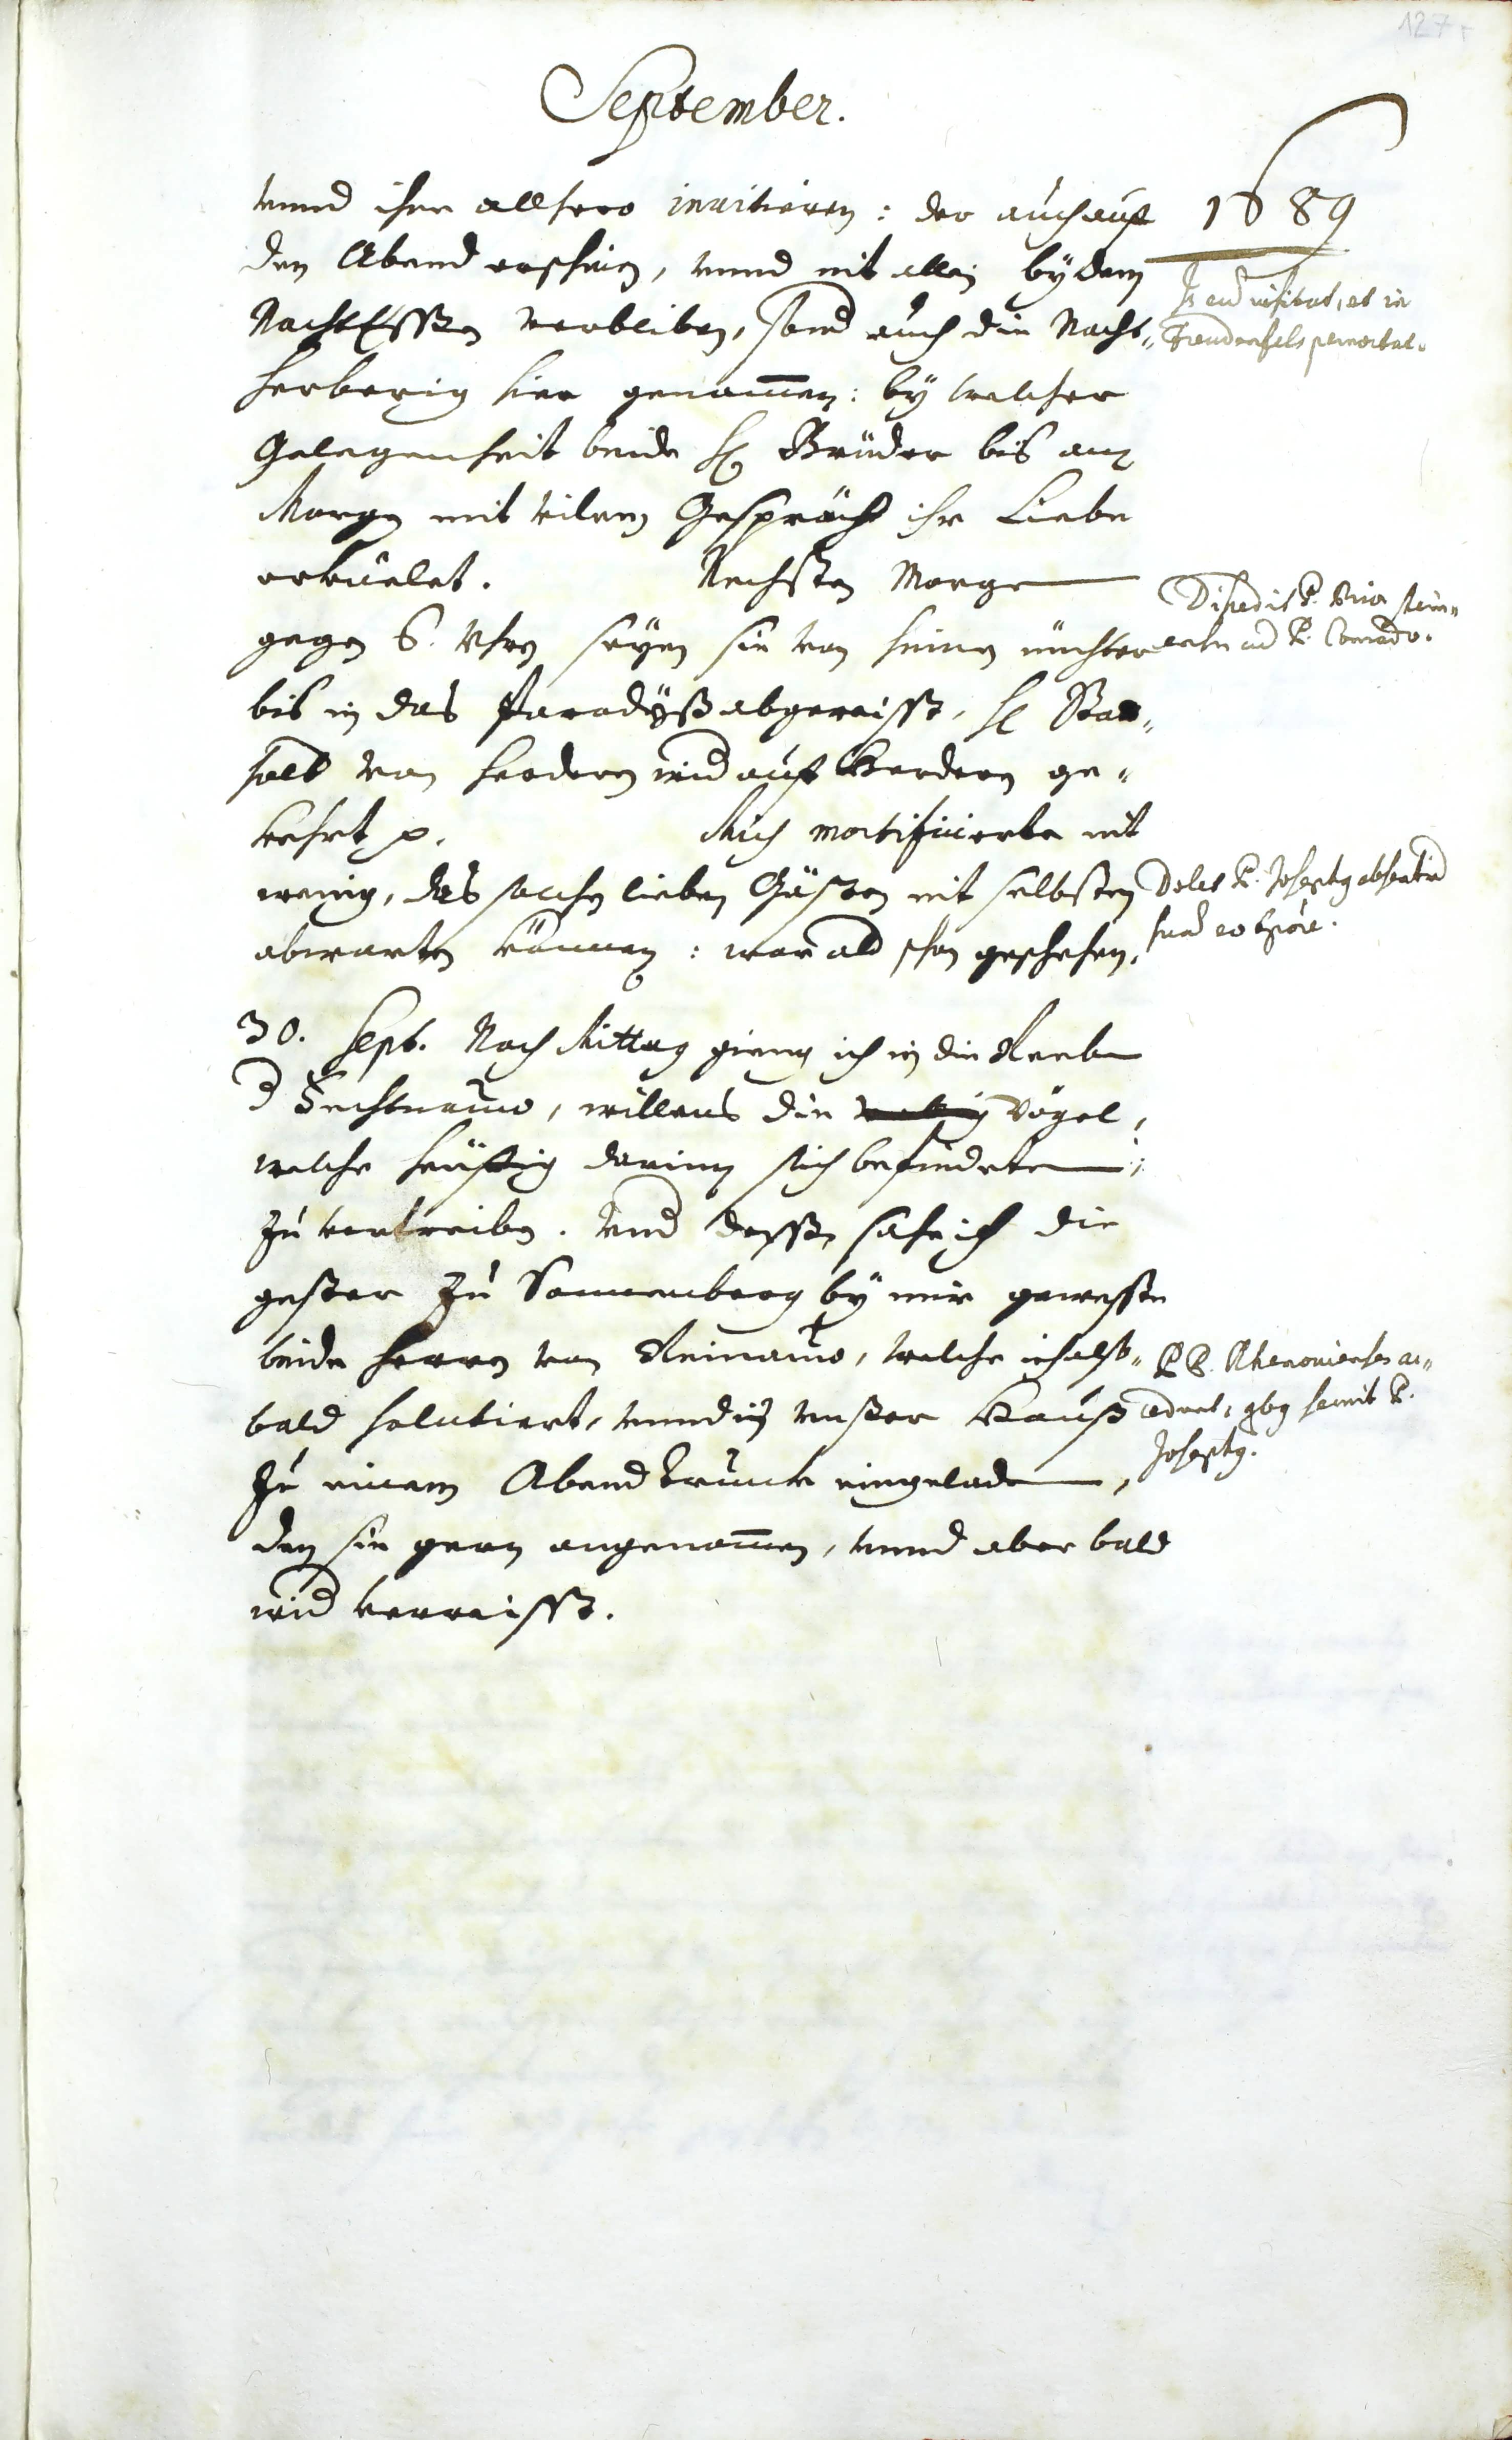 127r
September.
1689
vnnd ihne allhero invitieren: der auch auf
den Abend erschein, vnnd nit allein bÿ dem
NachtEssen verbliben, sond auch die Nacht„
herberig hier genom̄en: bÿ welcher
Gelegenheit beide H Brüder bis am
Morgen mit vilem Gespräch ihr Liebe
erkuelet. Nechsten Morgen
gegen 6. Vhren seÿen sie von hinen nüchter
bis in das Paradÿß abgereisst, H Stat„
halt von Herderen wid auf Herderen ge„
kehrt p. Mich mortificierte nit
wenig, das solchen lieben Gästen nit selbsten
abwarten können: war ald schon geschehen.
Is eud visitat, et in
Freudenfels pernoctat.
Discedit P. Prior
cum P. Conrado.
Dolet P. Josephg absentia
suâ eo tpore.
30. Sept. Nach Mittag gieng ich in die Reeben
d Fechtnauw, willens die Vögel,
welche heüffig darinn sich befindeten,
zu vertreiben. Vnd dessen sahe ich die
gester zu Sonnenberg bÿ mir gewesste
beide Herren von Reinauw, welche ich alß„
bald salutiert, vnnd in vnsser Hauß
zu einem Abendtrunck eingeladen,
den sie gern angenom̄en, vnnd aber bald
wid verreisst.
PP. Rhenovienses ac„
cedunt, qbg servit P.
Josephg.